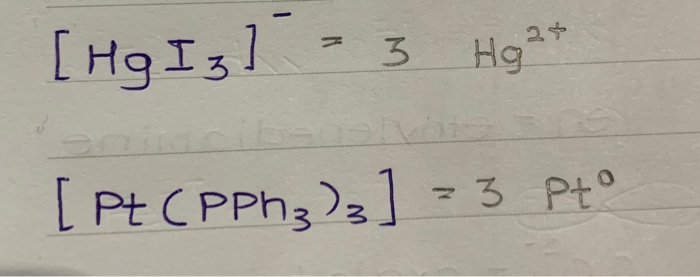 [HgI₃]⁻ = 3 Hg²⁺
[Pt(PPh₃)₃] = 3 Pt⁰